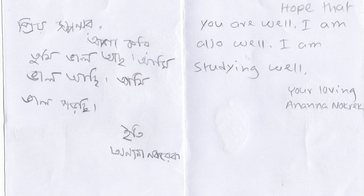 প্রিয়
আশা করি
তুমি ভাল আছ। আমি
ভাল আছি। আমি
ভাল পড়ছি।
ইতি
অনন্যা
Hope that
you are well. I am
also well. I am
studying well.
Your loving
Ananna Nokrek